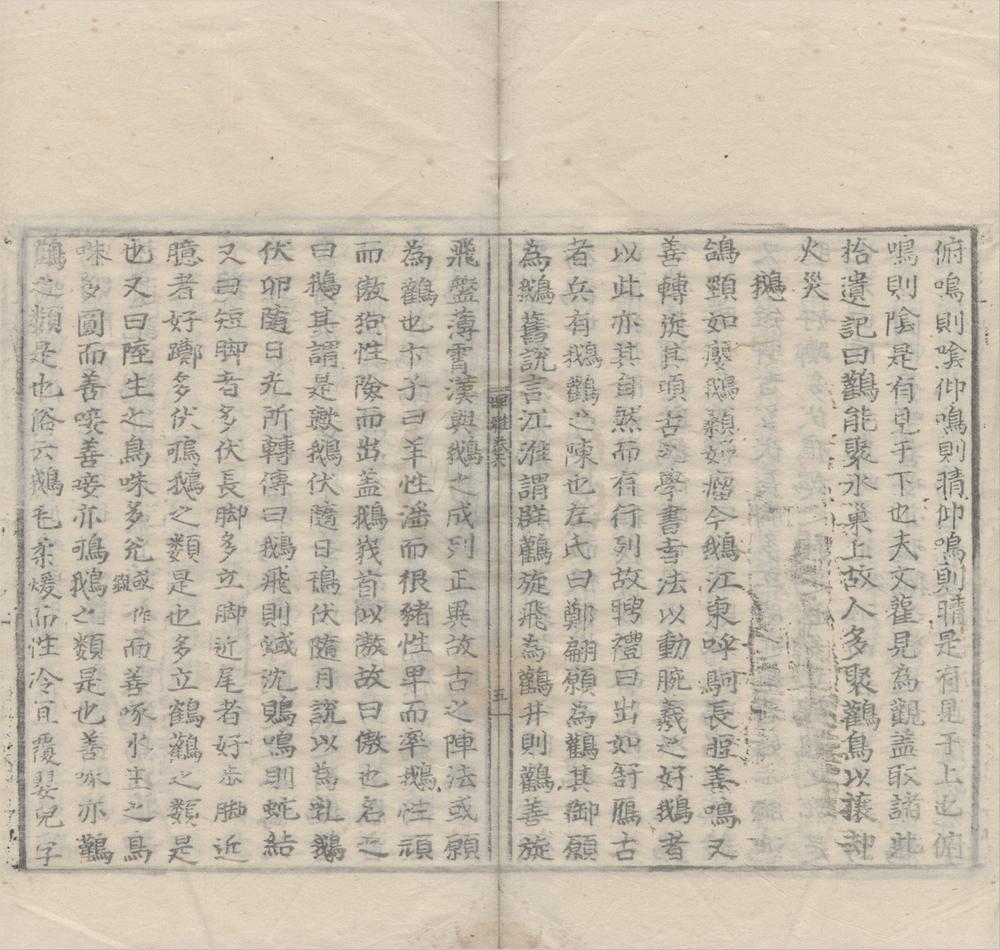 俯鳴則陰仰鳴則晴仰鳴則晴是有見于上也俯
鳴則陰是有見于下也夫文雚見為觀盖取諸此
拾遺記曰鸛能聚水巢上故人多聚鸛鳥以攘却
火災
鵝
鵅頸如瘿鵝纇如瘤今鵝江東呼䳗長脰善鳴又
善轉旋其項古之學書者法以動腕羲之好鵝者
以此亦其自然而有行列故聘禮曰出如舒鴈古
者兵有鵝鸛之陳也左氏曰鄭翩願為鸛其御願
為鵝舊說言江淮謂群鸛旋飛為鸛井則鸛善旋
埤雅卷六
五
飛盤薄霄漢與鵝之成列正異故古之陣法或願
為鸛也卞子曰羊性潘而很豬性卑而率鵝性頑
而傲狗性險而出盖鵝峩首似激故曰傲也名之
曰鵝其謂是歟鵝伏隨日鳿伏隨月說以為乳鵝
伏卵隨日光所轉傳曰鵝飛則蜮沈鵙鳴則蚖結
又曰短脚者多伏長脚多立脚近尾者好步脚近
臆者好躑多伏鳿鵝之類是也多立鶴鸛之類是
也又曰陸生之鳥咮多兊或作銳而善啄水生之鳥
咮多圓而善唼善唼亦鳿鵝之類是也善啄亦鸛
鶴之類是也俗云鵝毛柔煖而性冷宜覆嬰兒字